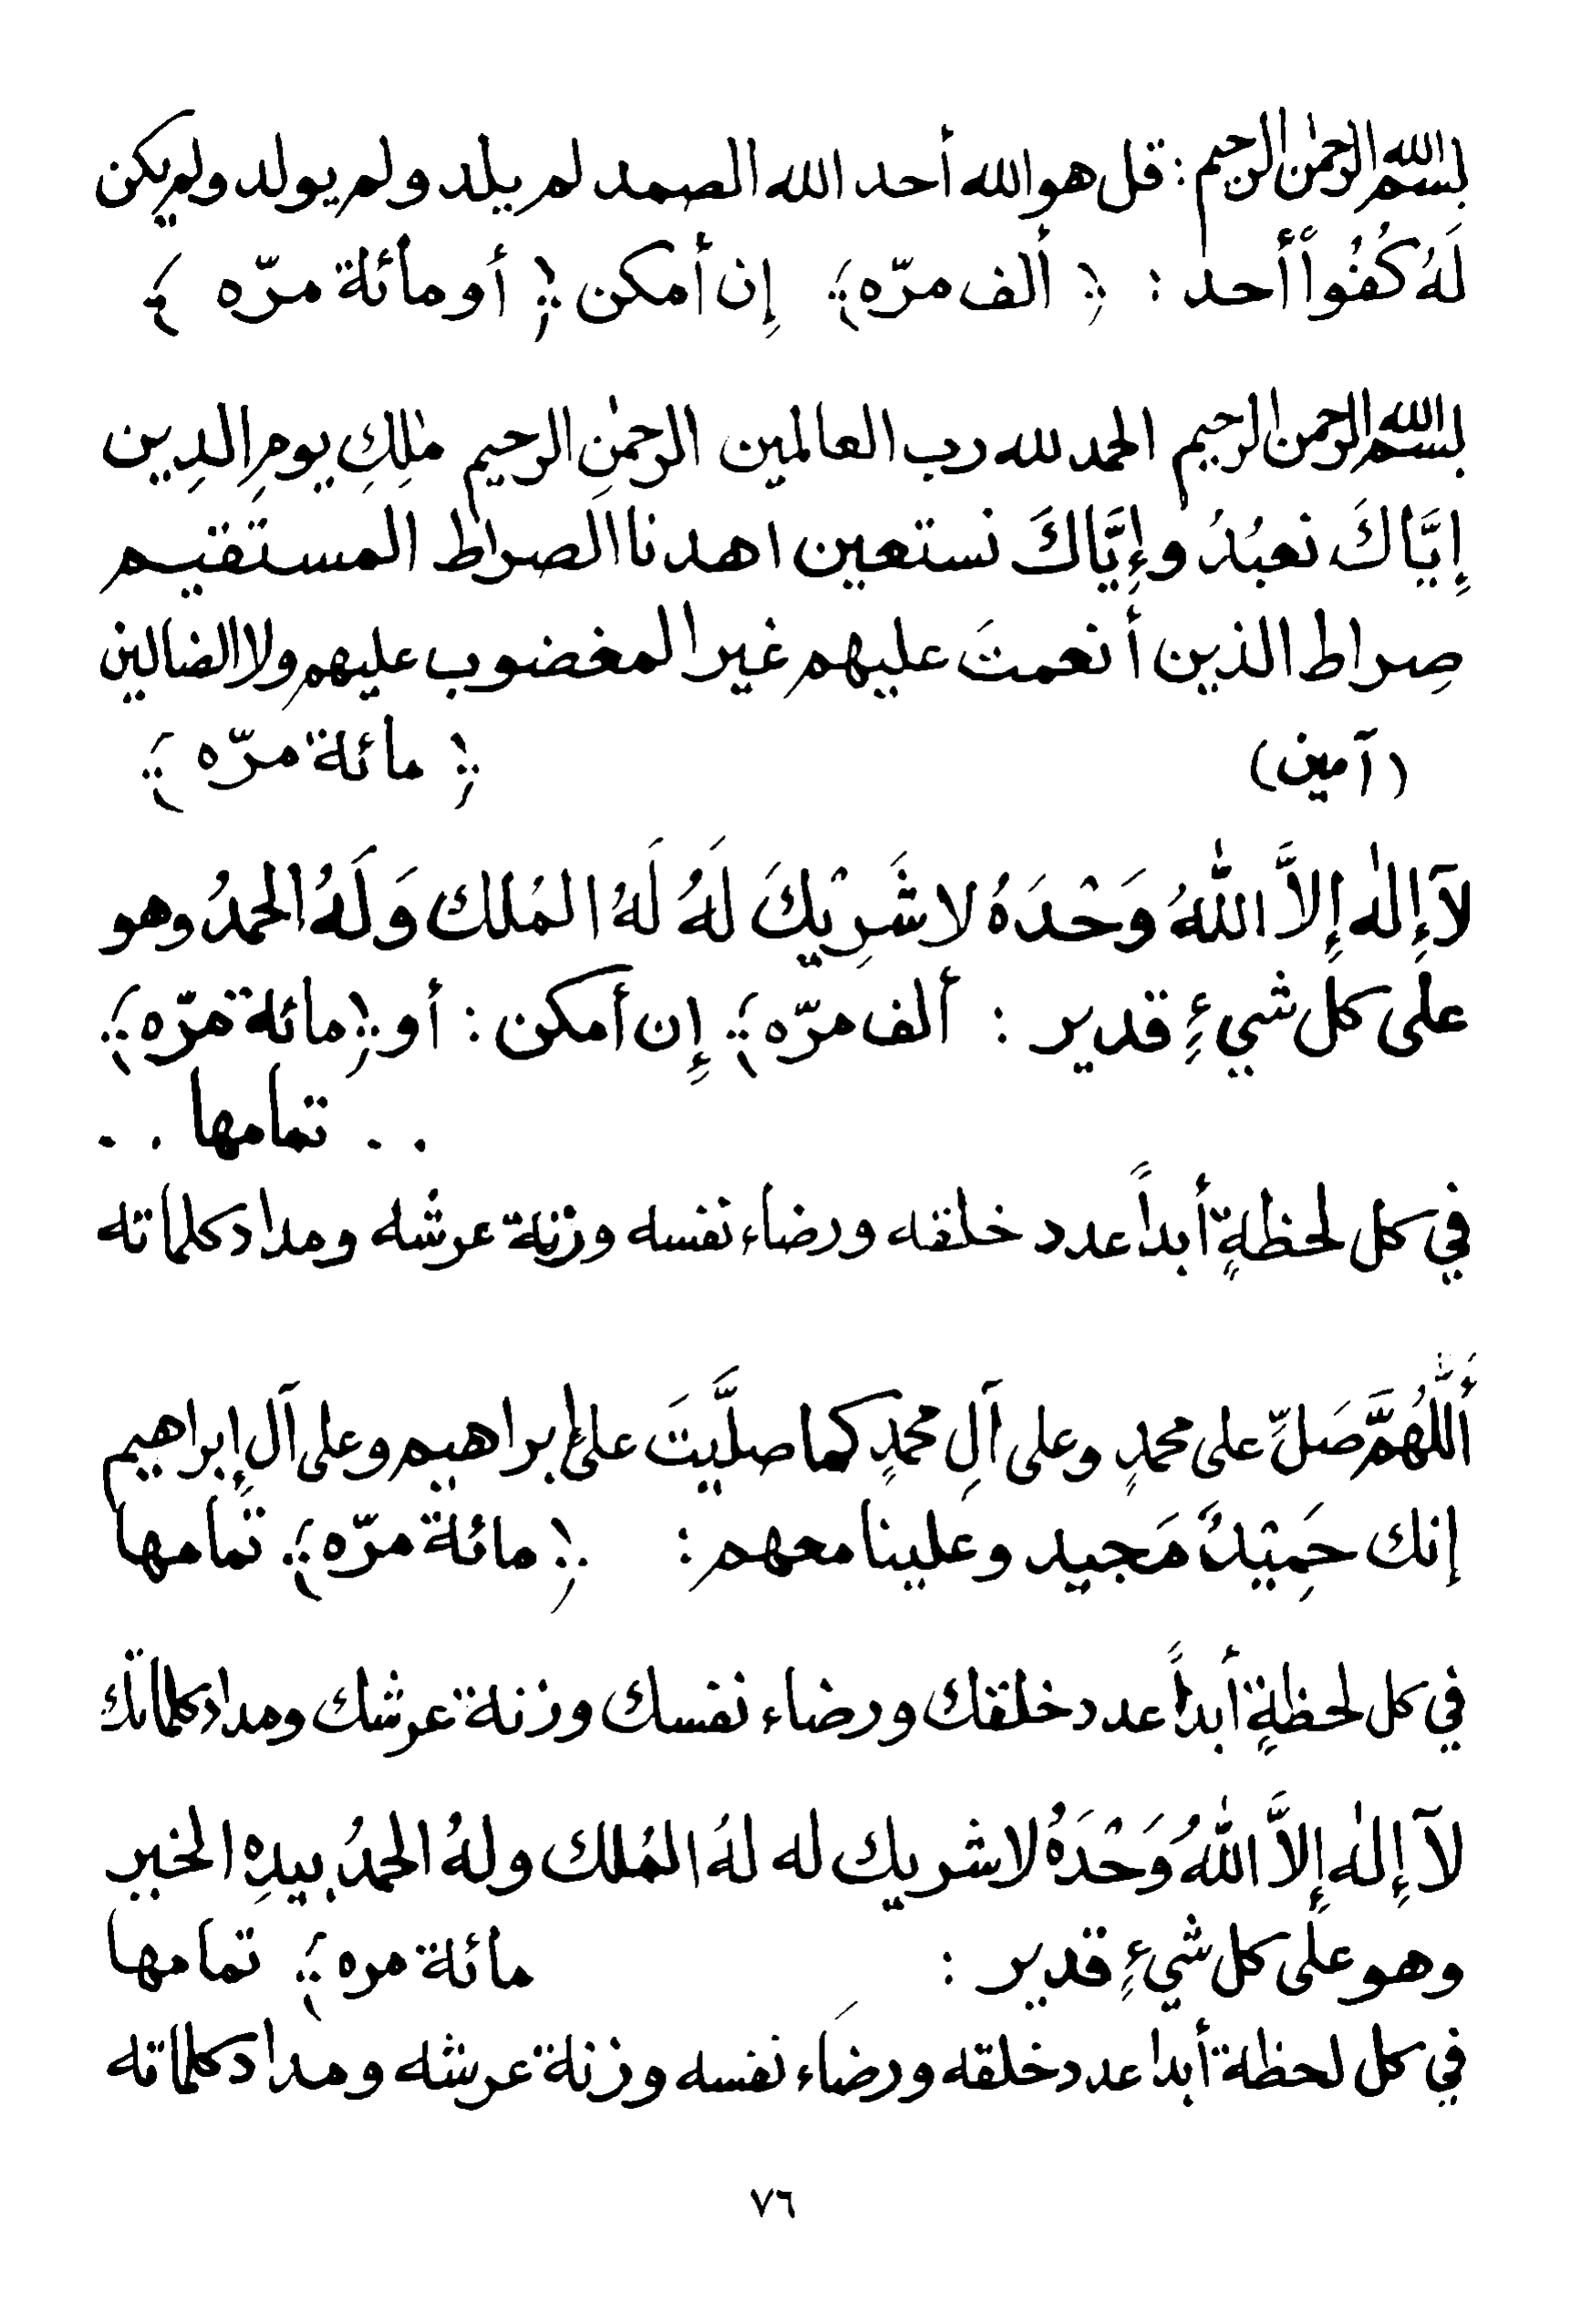 بسم الله الرحمٰن الرحيم : قل هو الله أحد الله الصمد لم يلد ولم يولد ولم يكن
لَهُ كُفُواً أحد : ﴿ ألف مرّه ﴾ إن أمكن ﴿ أو مائة مرّه ﴾
بسم الله الرحمن الرحيم الحمد لله رب العالمين الرحمٰنِ الرحيم مٰلِكِ يومِ الدِين
إِيَّاكَ نعبُدُ وإِيَّاكَ نستعين اهدنا الصراط المستقيم
صِراط الذين أنعمتَ عليهم غير المغضوب عليهم ولا الضالين
(آمين) ﴿ مائة مرّه ﴾
لآ إِلٰه إِلاَّ اللّٰهُ وَحْدَهُ لا شَرِيْكَ لَهُ لَهُ المُلك وَلَهُ الحمدُ وهو
على كل شيءٍ قدير : ألف مرّه ﴾ إِن أمكن : أو ﴿ مائة مرّه ﴾
. . تمامها . .
في كل لحظةٍ أبداً عدد خلقه ورضاء نفسه وزنة عرشه ومداد كلماته
أَللّٰهُمَّ صَلِّ على محمدٍ وعلى آلِ محمدٍ كما صلَّيتَ على إبراهيم وعلى آل إِبراهيم
إنك حَمِيْدٌ مَجيد وعلينا معهم : ﴿ مائة مرّه ﴾ تمامها
في كل لحظةٍ أبداً عدد خلقك ورضاء نفسك وزنة عرشك ومداد كلماتك
لآ إِلٰه إِلاَّ اللّٰهُ وَحْدَهُ لا شريك له لهُ المُلك ولهُ الحمدُ بيدِه الخير
وهو على كل شيءٍ قدير : مائة مره ﴾ تمامها
في كل لحظة أبدا عدد خلقه ورضَاء نفسه وزنة عرشه ومداد كلماته
٧٦